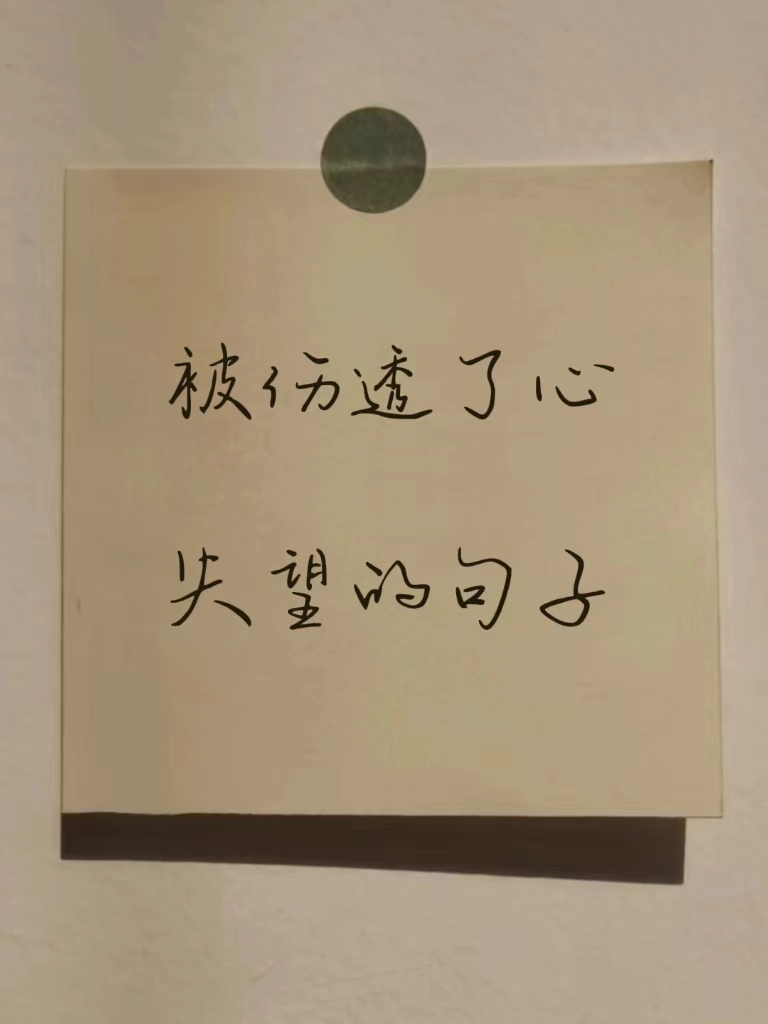 被伤透了心
失望的句子